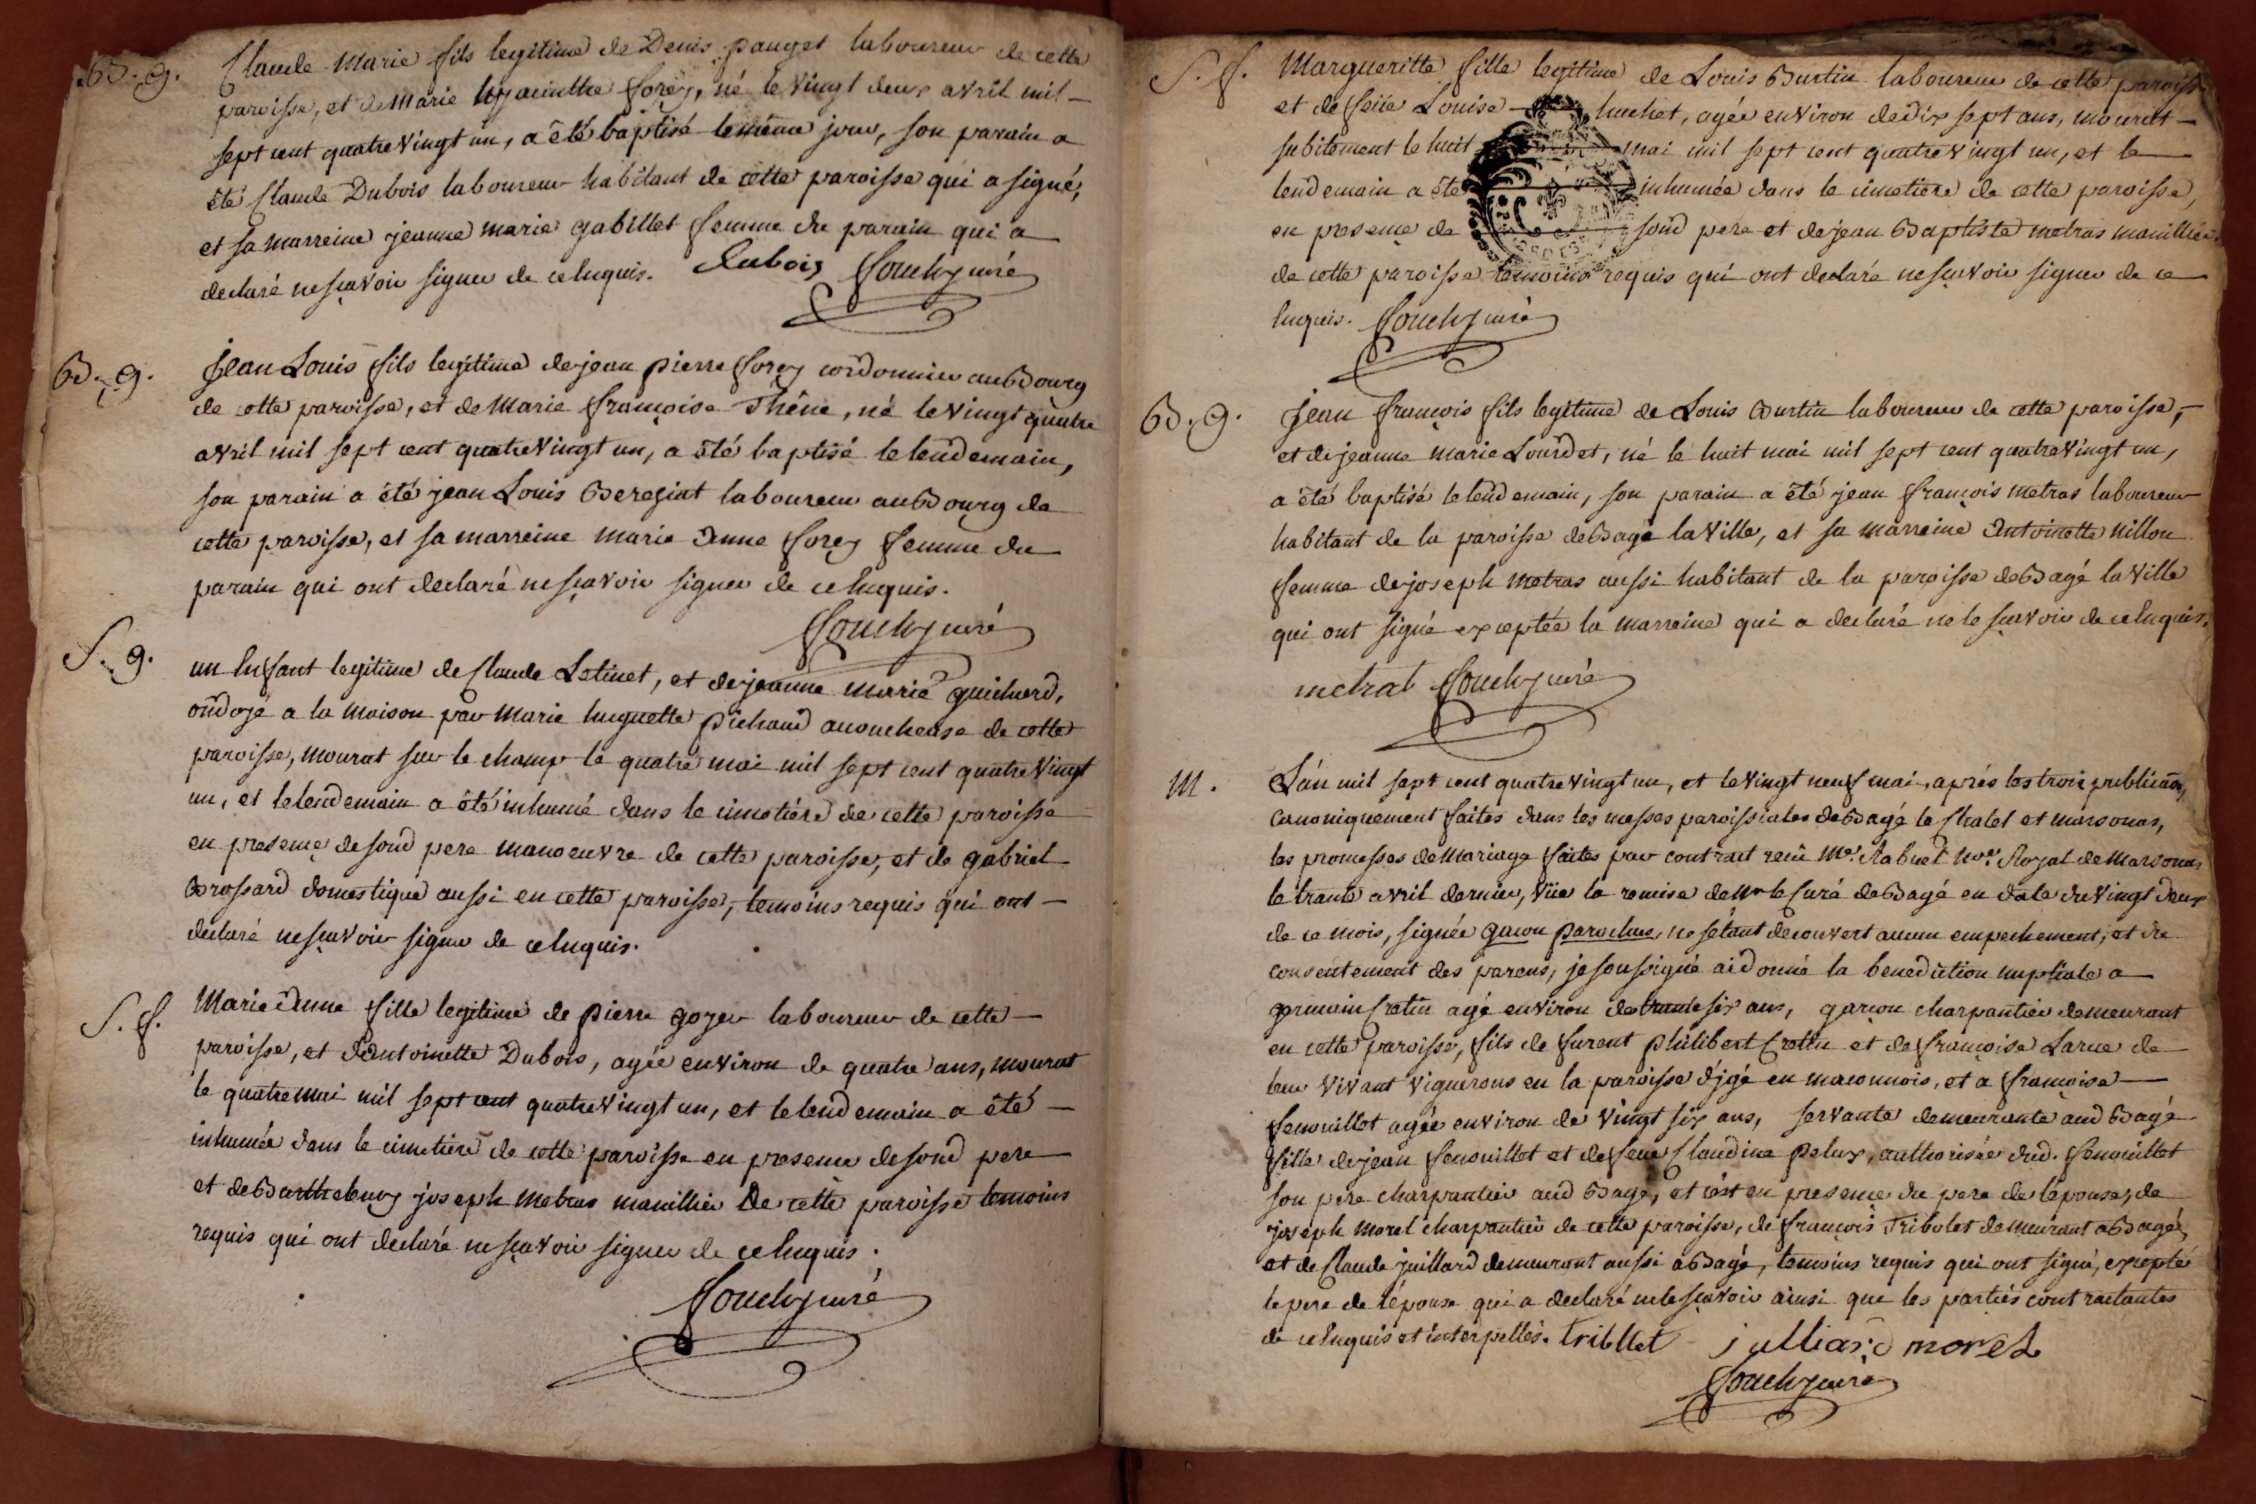 B. g. Claude Marie fils legitime de Denis pauget laboureur de cette
paroisse, et de Marie hyacinthe forey, né le vingt deux avril mil
sept cent quatre vingt un, a été baptisé le même jour, son parain a
été Claude Dubois laboureur habitant de cette paroisse qui a signé,
et sa marreine jeanne marie gabillet femme du parain qui a
declaré ne sçavoir signer de ce Enquis. dubois fouchy curé
B. g. Jean Louis fils legitime de jean pierre forey cordonnier au Bourg
de cette paroisse, et de Marie françoise Théne, né le vingt quatre
avril mil sept cent quatre vingt un, a été baptisé le lendemain,
son parain a été jean Louis Bereziat laboureur au Bourg de
cette paroisse, et sa marreine marie Anne forey femme du
parain qui ont declaré ne sçavoir signer de ce Enquis.
fouchy curé
S. g. un Enfant legitime de Claude Letinet, et de jeanne marie guichard,
ondoyé a la maison par Marie huguette pichaud acoucheuse de cette
paroisse, mourat sur le champ le quatre mai mil sept cent quatre vingt
un, et le lendemain a été inhumé dans le cimetiére de cette paroisse
en presence de soud pere manoeuvre de cette paroisse, et de gabriel
Brossard domestique aussi en cette paroisse, temoins requis qui ont
declaré ne sçavoir signer de ce Enquis.
S. f. Marie Anne fille legitime de pierre goyer laboureur de cette
paroisse, et d'Antoinette Dubois, agée environ de quatre ans, mourat
le quatre mai mil sept cent quatre vingt un, et le lendemain a été
inhumée dans le cimetiere de cette paroisse en presence de soud pere
et de Barthelemy joseph metras manillier de cette paroisse temoins
requis qui ont declaré ne sçavoir signer de ce Enquis.
fouchy curé
S. f. Margueritte fille legitime de Louis Burtin laboureur de cette paroisse
et de feüe Louise huchet, agée environ de dix sept ans, mourut
subitement le huit mai mil sept cent quatre vingt un, et le
lendemain a été inhumée dans le cimetiere de cette paroisse,
en presence de soud pere et de jean Baptiste metras manillier
de cette paroisse temoins requis qui ont declaré ne sçavoir signer de ce
Enquis. fouchy curé
B. g. Jean françois fils legitime de Louis Burtin laboureur de cette paroisse,
et de jeanne marie Lourdet, né le huit mai mil sept cent quatre vingt un,
a été baptisé le lendemain, son parain a été jean françois metras laboureur
habitant de la paroisse de Bagé la ville, et sa marreine Antoinette nillon
femme de joseph metras aussi habitant de la paroisse de Bagé la ville
qui ont signé exceptée la marreine qui a declaré ne le sçavoir de ce Enquis.
metrat fouchy curé
M. L'an mil sept cent quatre vingt un, et le vingt neuf mai, aprés les trois publicaõns,
canoniquement faites dans les messes paroissiales de Bagé le Chatel et marsonas,
les promesses de mariage faites par contract recü Me. Rabuel Nre. Royal de Marsonas
le trante avril dernier, vüe la remise de Mr le Curé de Bagé en date du vingt deux
de ce mois, signée gacon parochus, ne s'étant decouvert aucun empechement, et du
consentement des parens, je soussigné ai donné la benediction nuptiale a
germain Crotin agé environ de trante six ans, garçon charpantier demeurant
en cette paroisse, fils de furent philibert Crottin et de françoise Larue de
leur vivant vignerons en la paroisse d'jgé en maconnois, et a françoise
fenouillet agée environ de vingt six ans, servante demeurante aud Bagé
fille de jean fenouillet et de feüe Claudine pelux, authorisée dud. fenouillet
son pere charpantier aud Bagé, et c'est en presence du pere de l'épouse, de
joseph morel charpantier de cette paroisse, de françois Tribolet demeurant a Bagé,
et de Claude juillard demeurant aussi a Bagé, temoins requis qui ont signé, excepté
le pere de l'épouse qui a declaré ne le sçavoir ainsi que les parties contractantes
de ce Enquis et interpellés. tribllet julliard morel
fouchy curé